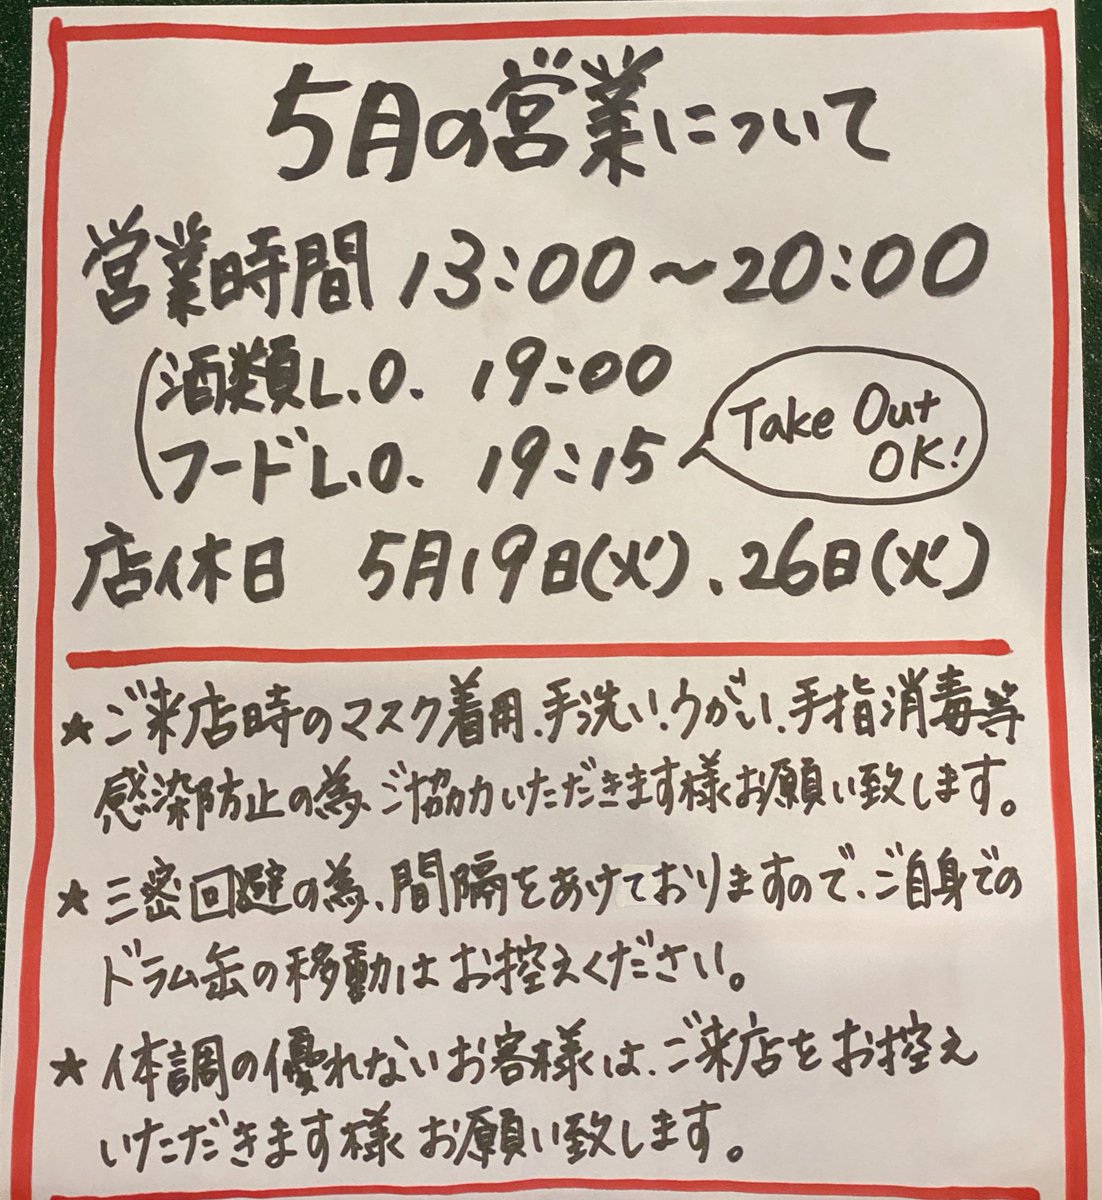 5月の営業について
営業時間 13:00～20:00
(酒類L.O. 19:00
フードL.O. 19:15
Take Out
OK!
店休日 5月19日(火)、26日(火)
★ご来店時のマスク着用、手洗い、うがい、手指消毒等
感染防止の為、ご協力いただきます様お願い致します。
★三密回避の為、間隔をあけておりますので、ご自身での
ドラム缶の移動はお控えください。
★体調の優れないお客様は、ご来店をお控え
いただきます様お願い致します。